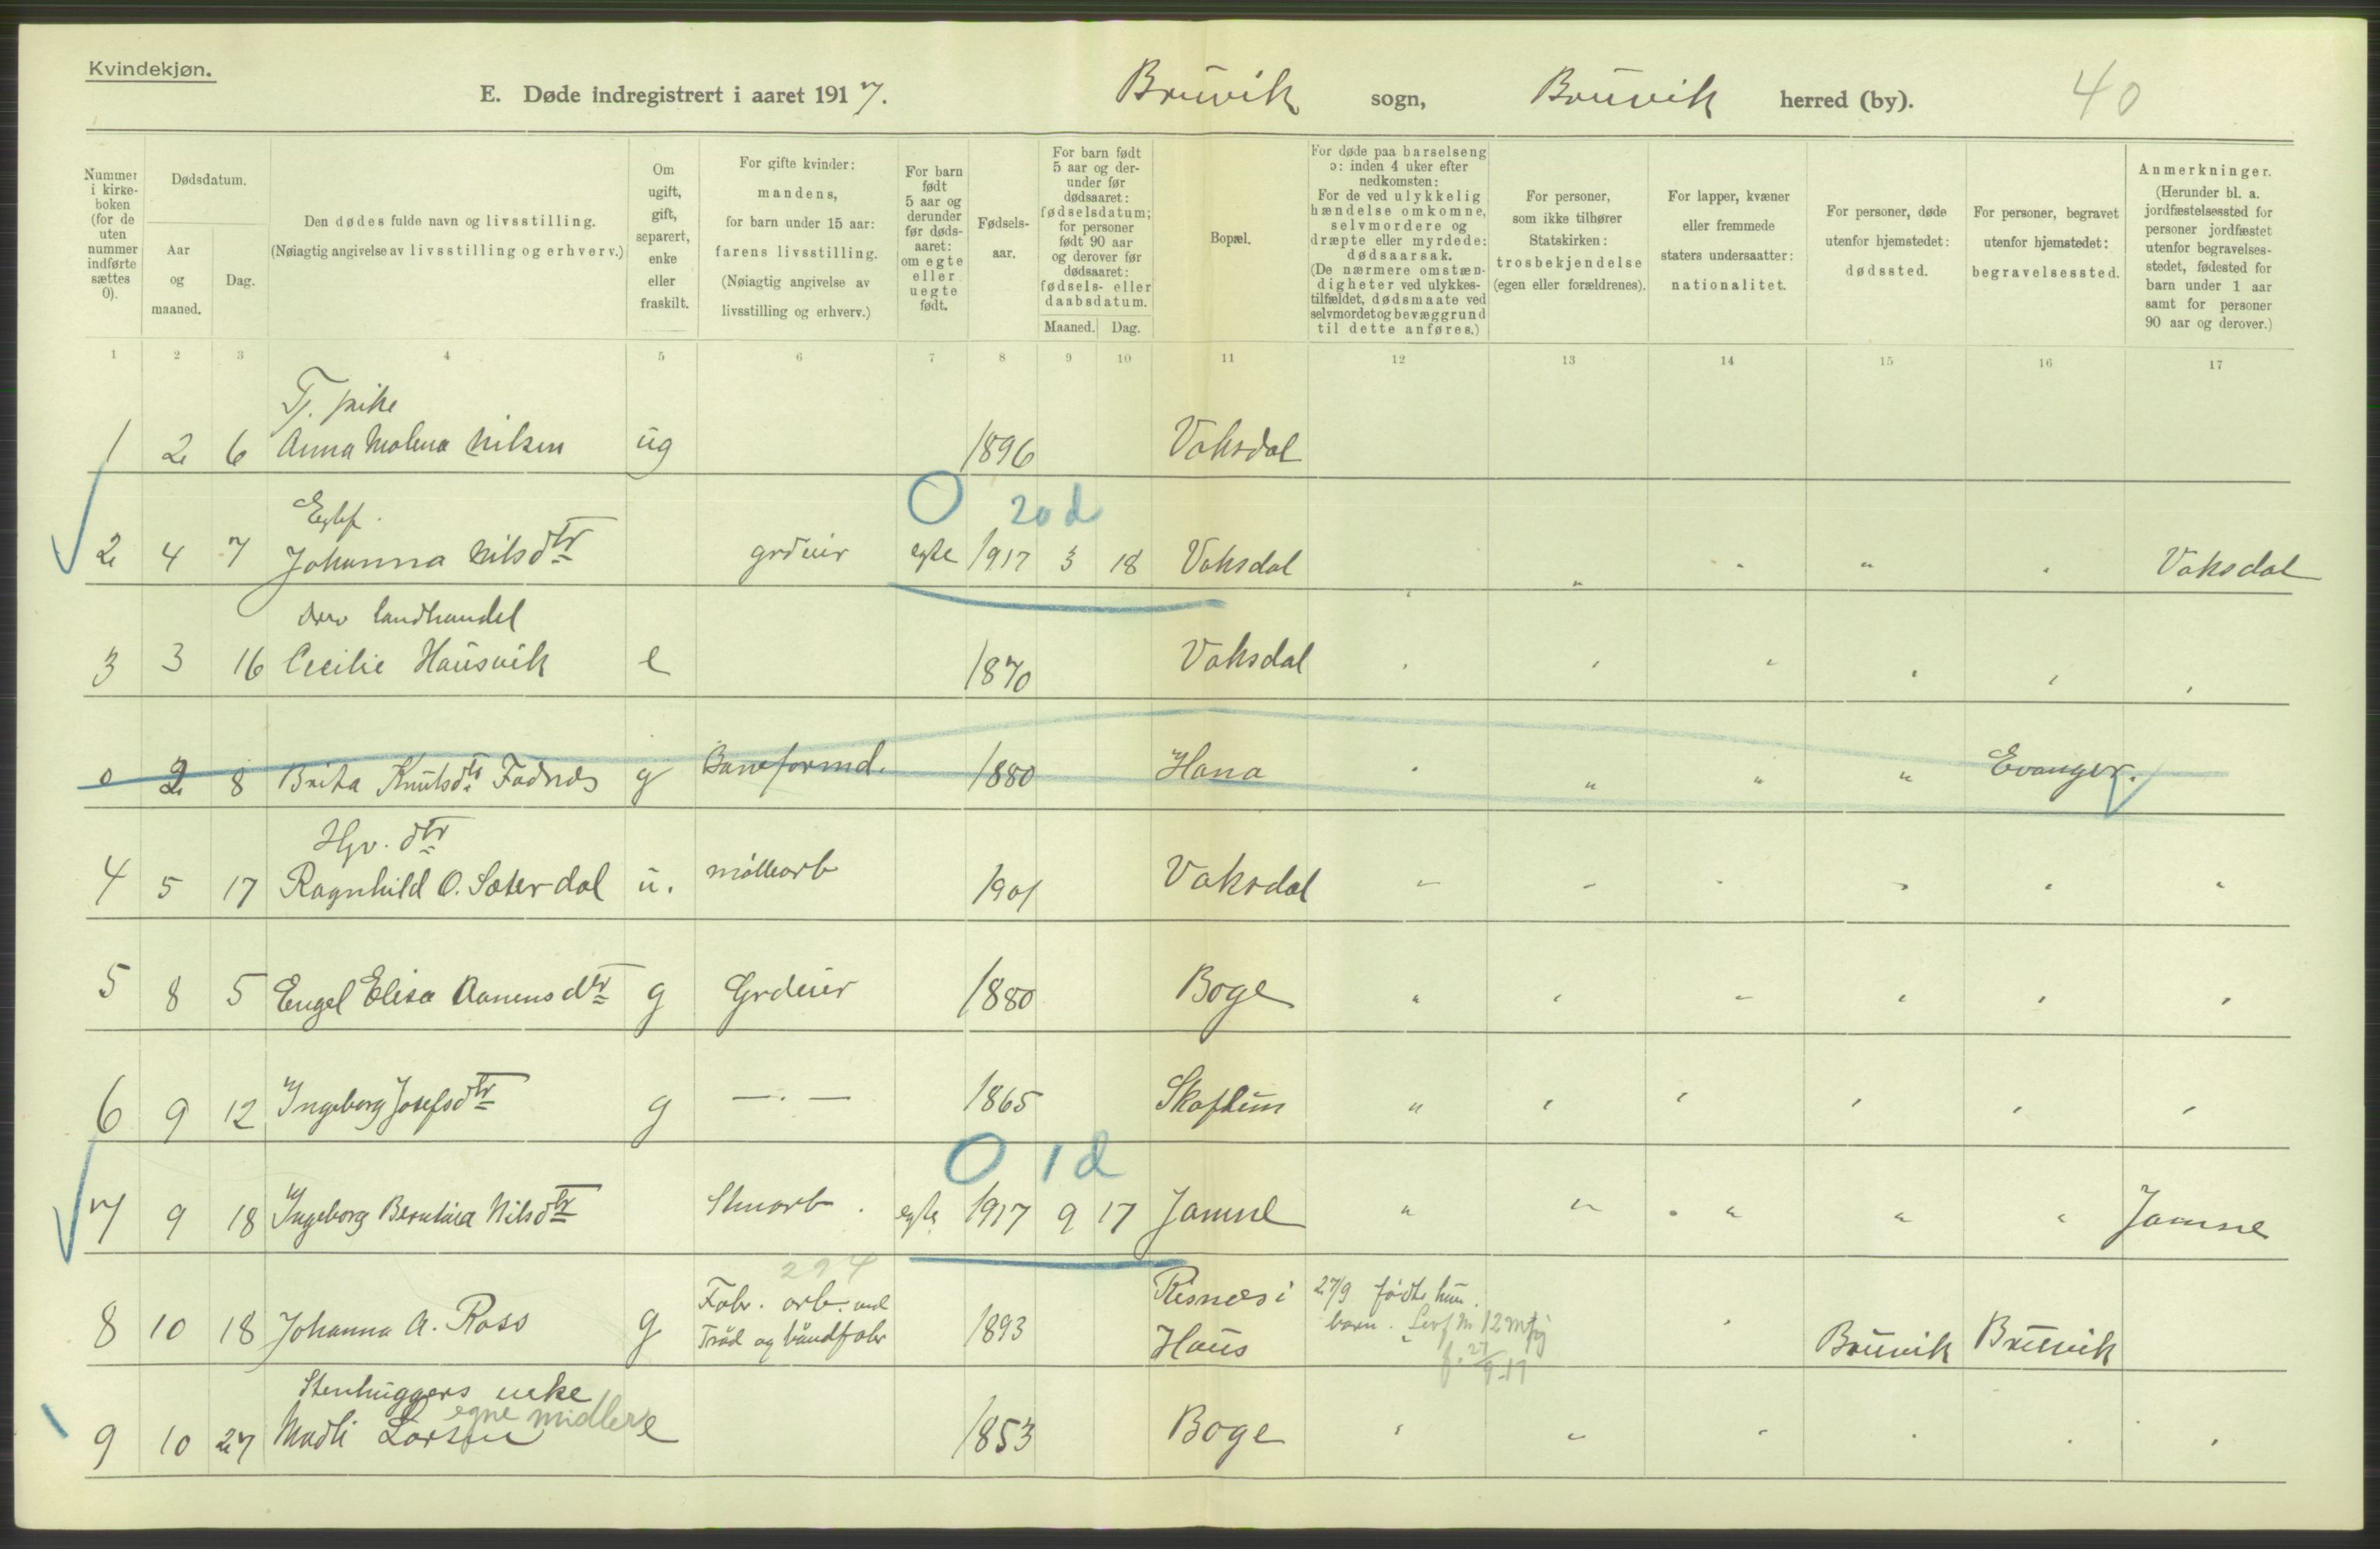 Kvindekjøn.
E. Døde indregistrert i aaret 1917. Bruvik sogn, Bruvik herred (by). 40
Nummer i kirke-boken (for de uten nummer indførte sættes 0).
Dødsdatum.
Aar og maaned.
Dag.
Den dødes fulde navn og livsstilling.
(Nøiagtig angivelse av livsstilling og erhverv.)
Om ugift, gift, separert, enke eller fraskilt.
For gifte kvinder: mandens, for barn under 15 aar: farens livsstilling. (Nøiagtig angivelse av livsstilling og erhverv.)
For barn født 5 aar og derunder før døds-aaret: om egte eller uegte født.
Fødsels-aar.
For barn født 5 aar og der-under før dødsaaret: fødselsdatum; for personer født 90 aar og derover før dødsaaret: fødsels- eller daabsdatum.
Maaned. Dag.
Bopæl.
For døde paa barselseng ɔ: inden 4 uker efter nedkomsten: For de ved ulykkelig hændelse omkomne, selvmordere og dræpte eller myrdede: dødsaarsak. (De nærmere omstæn-digheter ved ulykkes-tilfældet, dødsmaate ved selvmordet og bevæggrund til dette anføres.)
For personer, som ikke tilhører Statskirken: trosbekjendelse (egen eller forældrenes).
For lapper, kvæner eller fremmede staters undersaatter: nationalitet.
For personer, døde utenfor hjemstedet: dødssted.
For personer, begravet utenfor hjemstedet: begravelsessted.
Anmerkninger. (Herunder bl. a. jordfæstelsessted for personer jordfæstet utenfor begravelses-stedet, fødested for barn under 1 aar samt for personer 90 aar og derover.)
1 2 3 4 5 6 7 8 9 10 11 12 13 14 15 16 17
Tj. pike
1 2 6 Anna Molena Nilsen ug 1896 Vaksdal
O 20 d
2 4 7 Johanna Nilsdtr grdeier egte 1917 3 18 Vaksdal " " " " " Vaksdal
landhandel
3 3 16 Cecilie Hausvik e 1870 Vaksdal " " " " " "
0 2 8 Brita Knutsdtr Fadnes g Baneformd. 1880 Hana " " " " Evanger.
Hjv. dtr
4 5 17 Ragnhild O. Sæterdal u. møllearb 1901 Vaksdal " " " " " "
5 8 5 Engel Elisa Aamunsdtr g Grdeier 1880 Boge " " " " " "
6 9 12 Ingeborg Josefsdtr g —.— 1865 Skaftun " " " " " "
O 1 d
7 9 18 Ingeborg Berntina Nilsdtr Stenarb. egte 1917 9 17 Jamne " " " " " Jamne
294
8 10 18 Johanna A. Ross g Fabr. arb. ved Tråd og båndfabr 1893 Risnes i Haus 27/9 fødte hun barn. Levf № 12 mtfj f. 27/9-17 " Bruvik Bruvik
Stenhuggers enke
egne midler
9 10 27 Madli Larsen e 1853 Boge " " " " " "